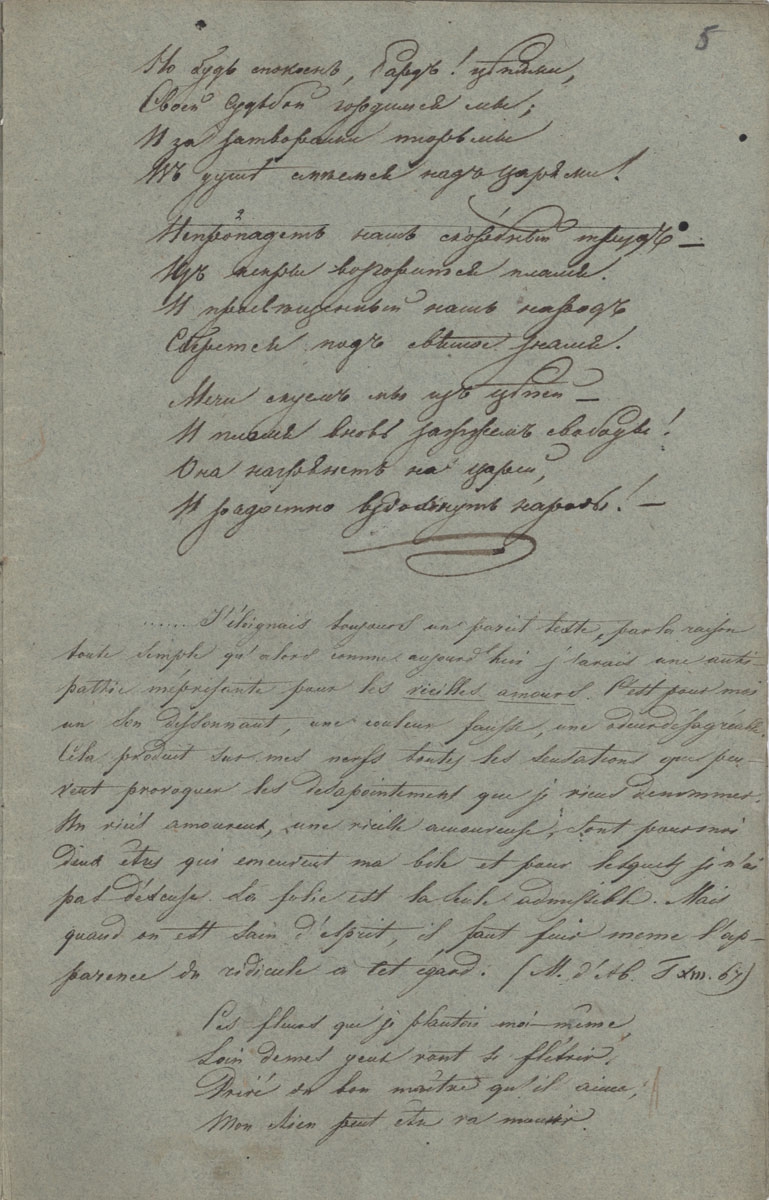 5
Но будь спокоенъ, Бардъ! цѣпями,
Своей судьбой гордимся мы;
И за затворами тюрьмы
Въ душѣ смѣемся надъ царями!
Непропадетъ нашъ скорбный трудъ —
Изъ искры возгорится пламя.
И просвѣщенный нашъ народъ
Сберется подъ святое знамя.
Мечи скуемъ мы изъ цѣпей —
И пламя вновь зажжемъ свободы!
Она нагрянетъ на царей,
И радостно вздохнутъ народы! —
...... J'éloignais toujours un pareil texte, par la raison
toute simple qu'alors comme aujourd'hui j'avais une anti-
pathie méprisante pour les vieilles amours. C'est pour moi
un son dissonnant, une couleur fausse, une odeur désagréable.
Cela produit sur mes nerfs toutes les sensations que peu-
vent provoquer les desapointement que je viens denommer.
Un vieil amoureux, une vieille amoureuse, sont pour moi
deux êtres qui emeuvent ma bile et pour lesquels je n'ai
pas d'excuse. La folie est la seule admissible. Mais
quand on est sain d'esprit, il faut fuir meme l'ap-
parence du ridicule a cet egard. (M. d'Ab. T. XIII. 67)
Ces fleurs que je plantois moi-même
Loin de mes yeux vont se flétrir,
Privé du bon maître qu'il aime,
Mon chien peut être va mourir.